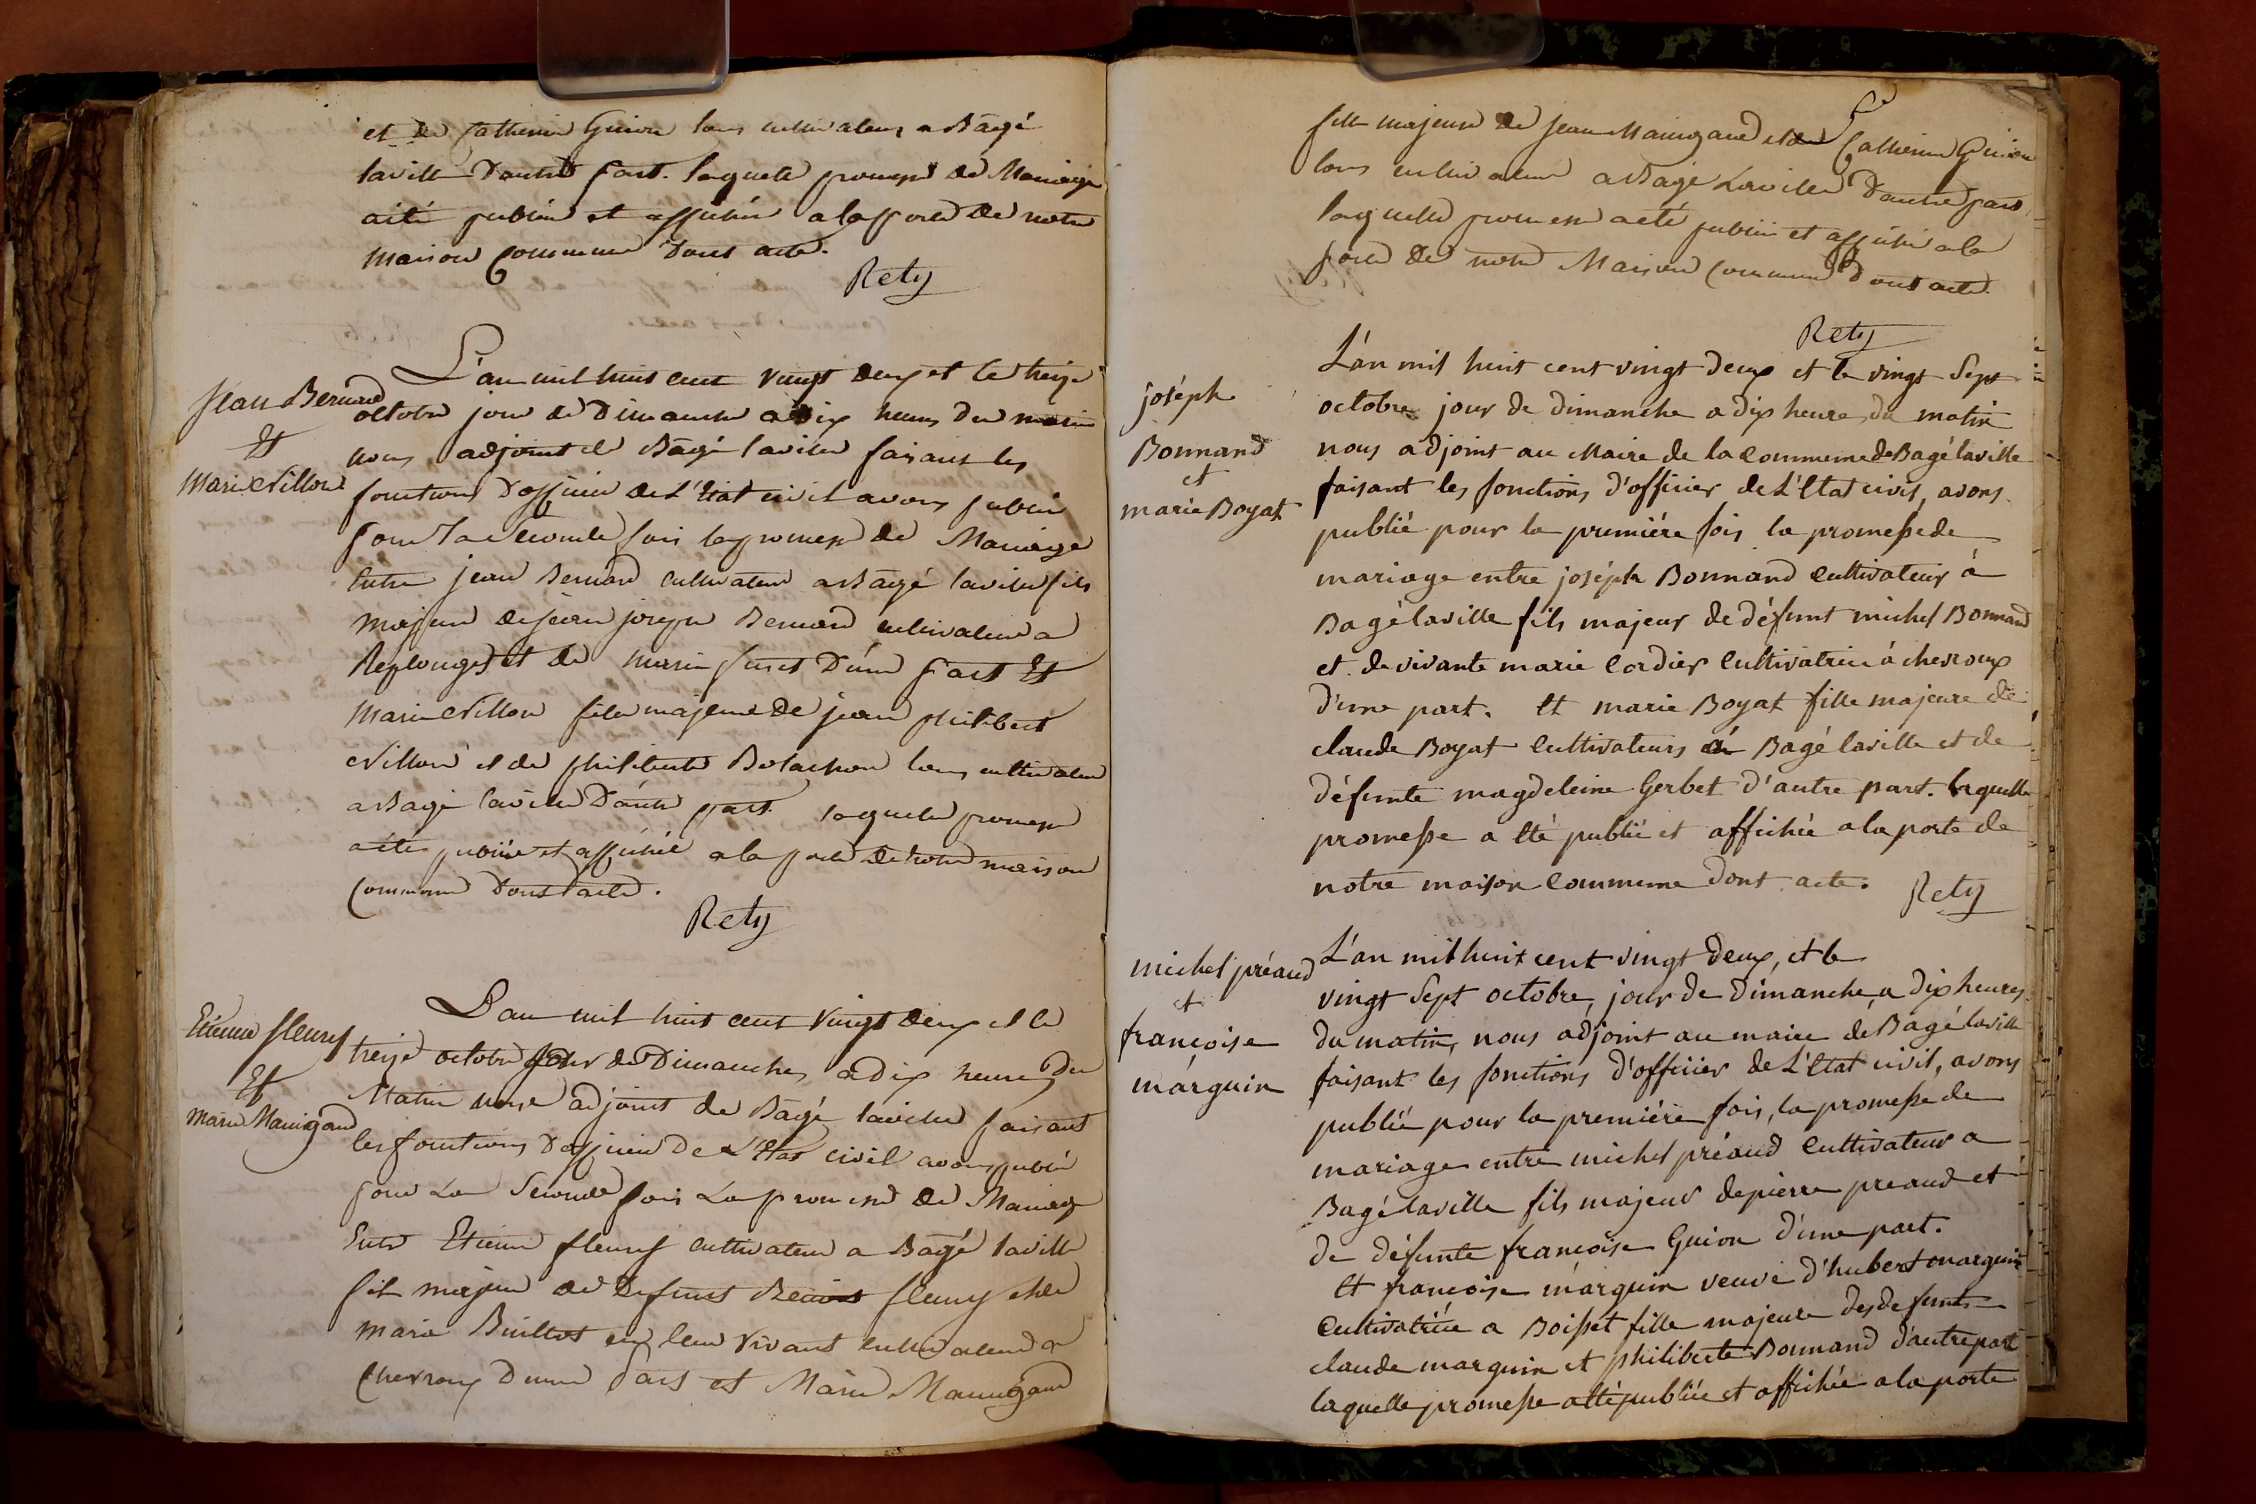 et de Catherine Guion tous cultivateurs a Bâgé
laville d'autre part. laquelle promesse de Mariage
aété publiée et affichée a la porte de notre
maison Commune dont acte.
Rety
Jean Bernard
Et
Marie Nillon
L'an mil huit cent vingt deux et le treize
octobre jour de Dimanche a dix heures du matin
nous adjoint de Bâgé laville faisant les
fonctions d'officier de L'Etat civil avons publié
pour la seconde fois la promesse de Mariage
Entre jean Bernard cultivateur a Bâgé laville fils
majeur de jean joseph Bernard cultivateur a
Replonges et de marie furet d'une part Et
marie Nillon fille majeure de jean philibert
Nillon et de philiberte Bolachon tous cultivateurs
a Bagé laville d'autre part laquelle promesse
aété publiée et affichée a la porte de notre maison
Commune dont acte.
Rety
Etienne fleury
Et
marie Manigand
L'an mil huit cent vingt deux et le
treize octobre jour de Dimanche, a dix heures du
Matin nous adjoint de Bâgé laville faisant
les fonctions d'officier de L'Etat civil avons publié
pour La Seconde fois La promesse de Mariage
Entre Etienne fleury cultivateur a Bâgé laville
fils majeur de Defunt Benoit fleury et de
marie Buillot en leur vivant cultivateurs a
Chevroux d'une part et Marie Manigand
fille majeure de jean Manigand et de Catherine Guion
tous cultivateurs a Bâgé Laville d'autre part
laquelle promesse aété publiée et affichée a la
porte de notre Maison commune dont acte.
Rety
joséph
Bonnand
et
marie Boyat
L'án mil huit cent vingt deux et le vingt Sept
octobre jour de dimanche a dix heures du matin
nous adjoint au Maire de la commune de Bagé laville
faisant les fonctions d'officier de L'Etat civil, avons
publié pour la premiére fois la promesse de
mariage entre joséph Bonnand cultivateur á
Bagé laville fils majeur de défunt michel Bonnand
et de vivante marie Cordier Cultivatrice á chevroux
d'une part. Et marie Boyat fille majeure de
claude Boyat Cultivateurs á Bagé laville et de
défunte magdeleine Gerbet d'autre part. laquelle
promesse a Eté publié et affichée a la porte de
notre maison Commune dont acte.
Rety
michel préaud
et
françoise
marguin
L'án mil huit cent vingt deux, et le
vingt Sept octobre, jour de Dimanche, a dix heures
du matin, nous adjoint au maire de Bagé laville
faisant les fonctions d'officier de L'Etat civil, avons
publié pour la premiére fois, la promesse de
mariage entre michel préaud Cultivateur a
Bagé laville fils majeur de pierre preaud et
de défunte françoise Guion d'une part.
Et françoise marguin veuve d'hubert marguin
Cultivatrice a Boisset fille majeure des defunts
claude marguin et philiberte Bonnand d'autre part
laquelle promesse a Eté publiée et affichée a la porte